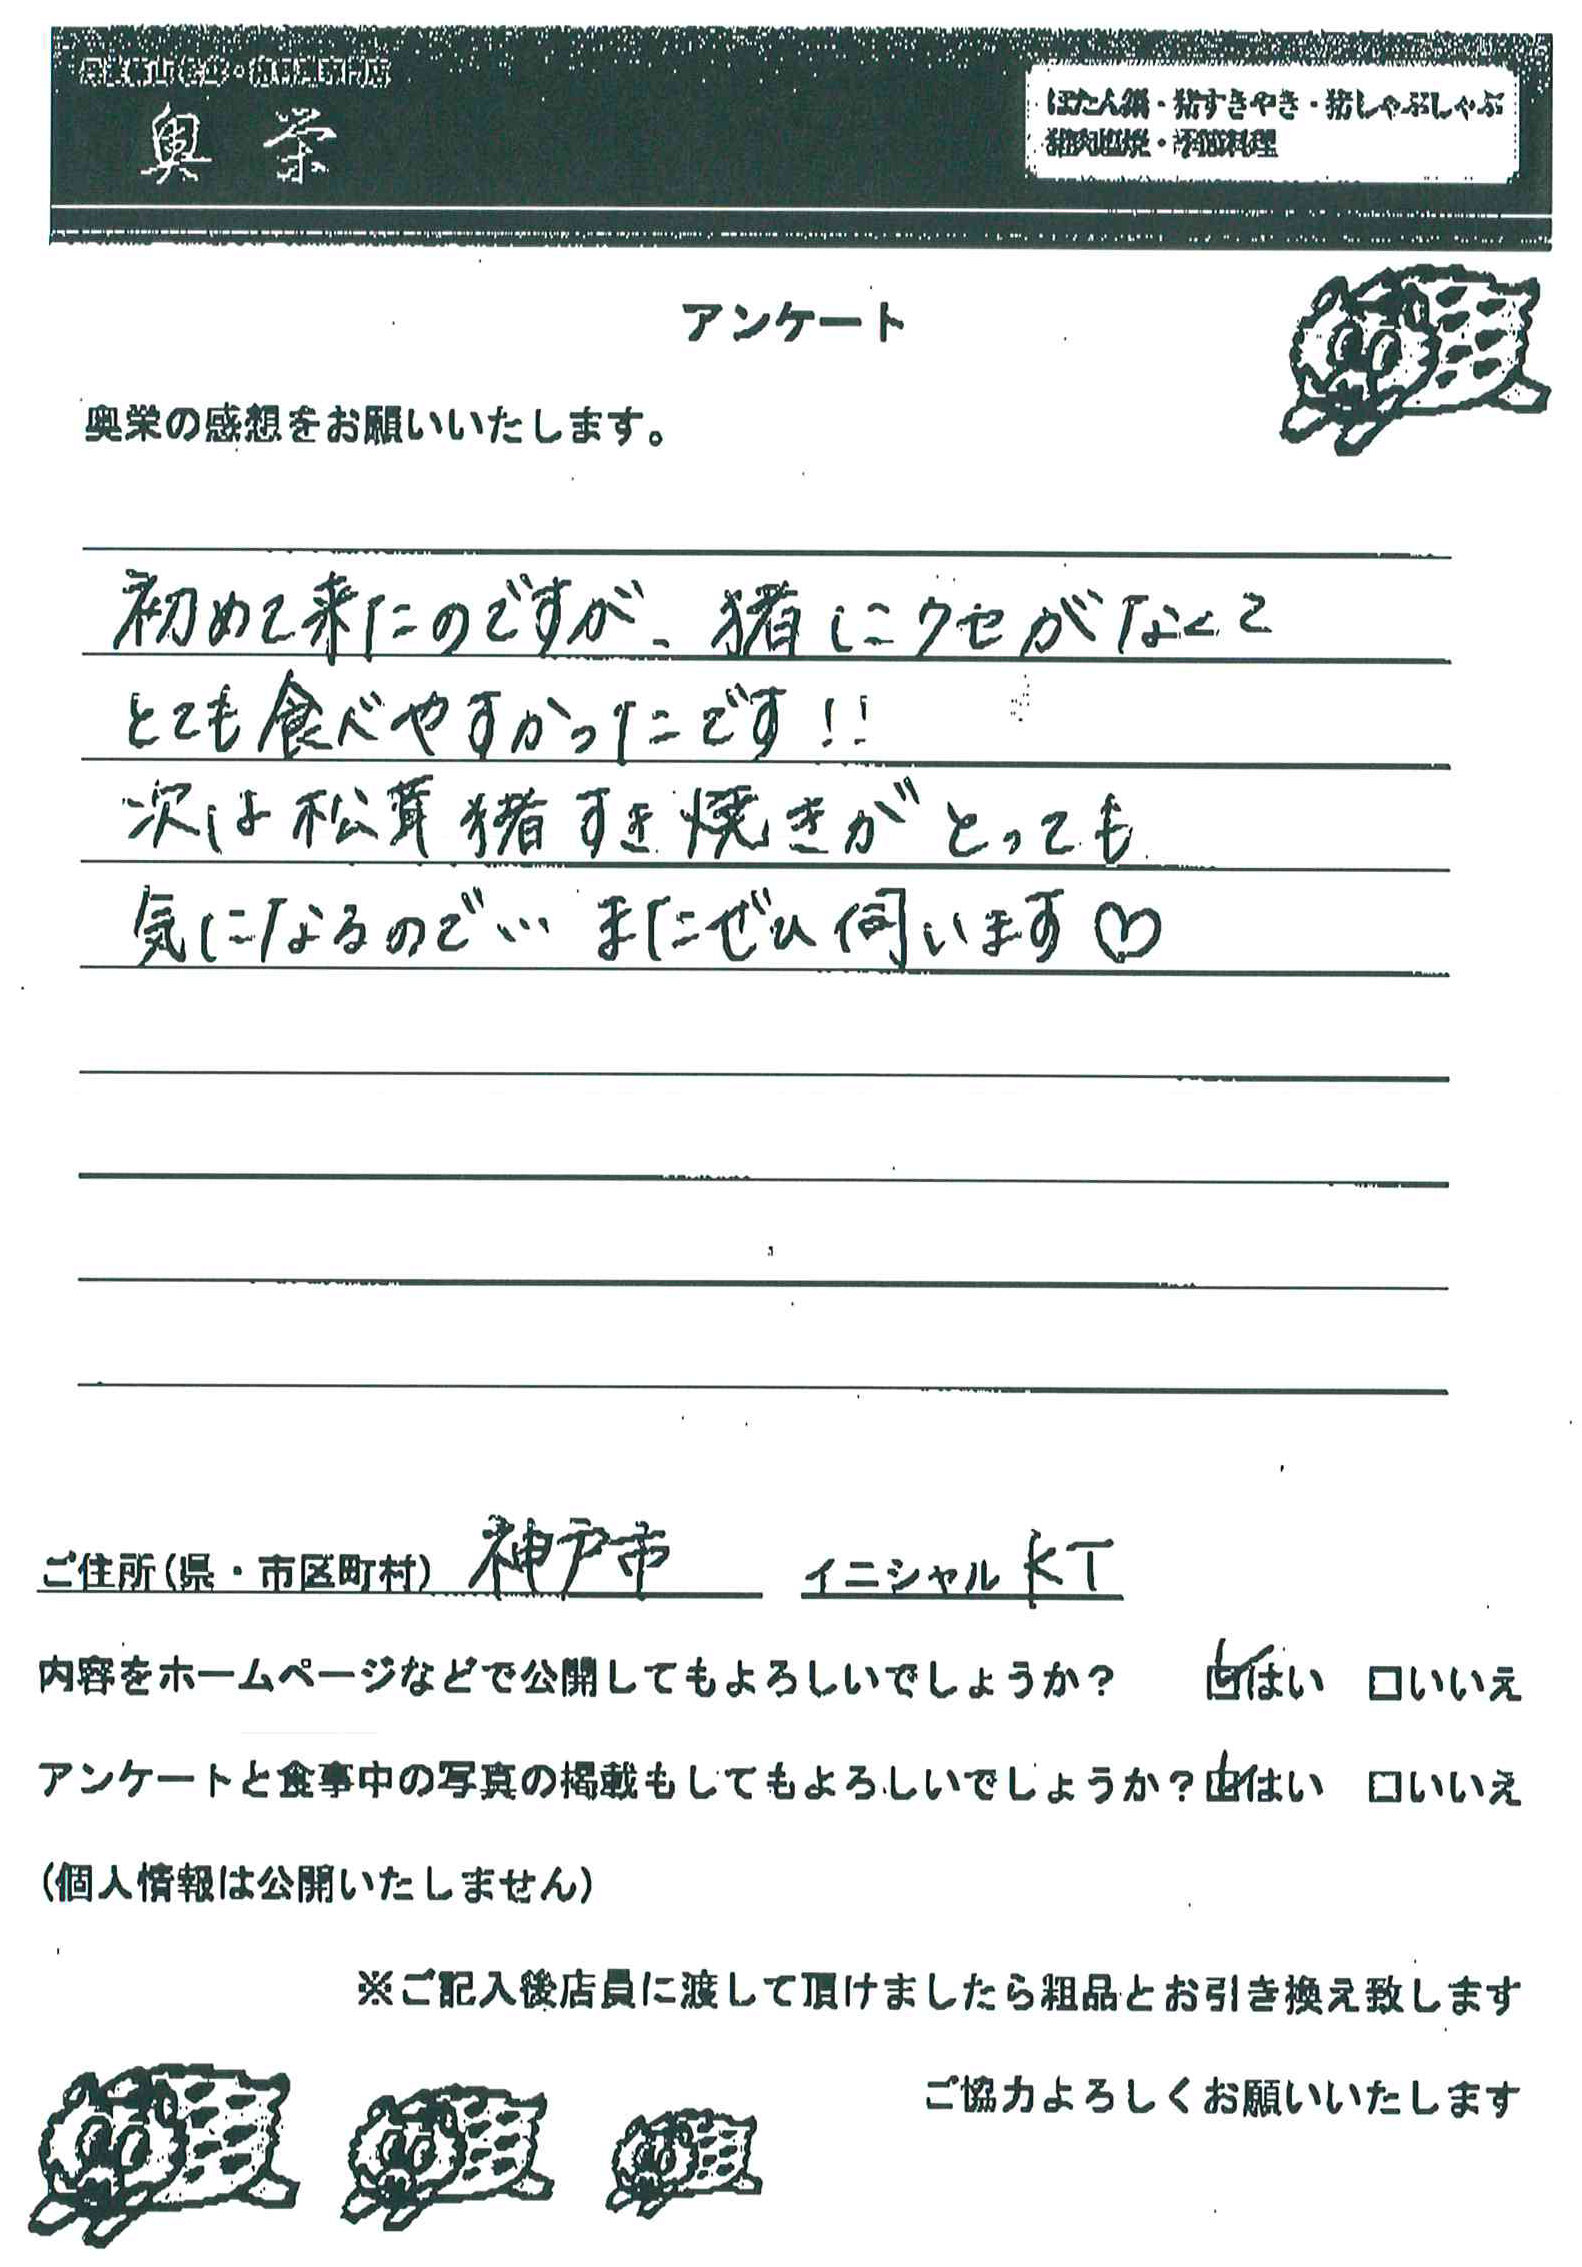 奥栄
ぼたん鍋・猪すきやき・猪しゃぶしゃぶ
猪肉塩焼・季節料理
アンケート
奥栄の感想をお願いいたします。
初めて来たのですが、猪にクセがなくて
とても食べやすかったです!!
次は松茸猪すき焼きがとっても
気になるので… またぜひ伺います♡
ご住所(県・市区町村) 神戸市 イニシャル KT
内容をホームページなどで公開してもよろしいでしょうか? ☑はい □いいえ
アンケートと食事中の写真の掲載もしてもよろしいでしょうか?☑はい □いいえ
(個人情報は公開いたしません)
※ご記入後店員に渡して頂けましたら粗品とお引き換え致します
ご協力よろしくお願いいたします